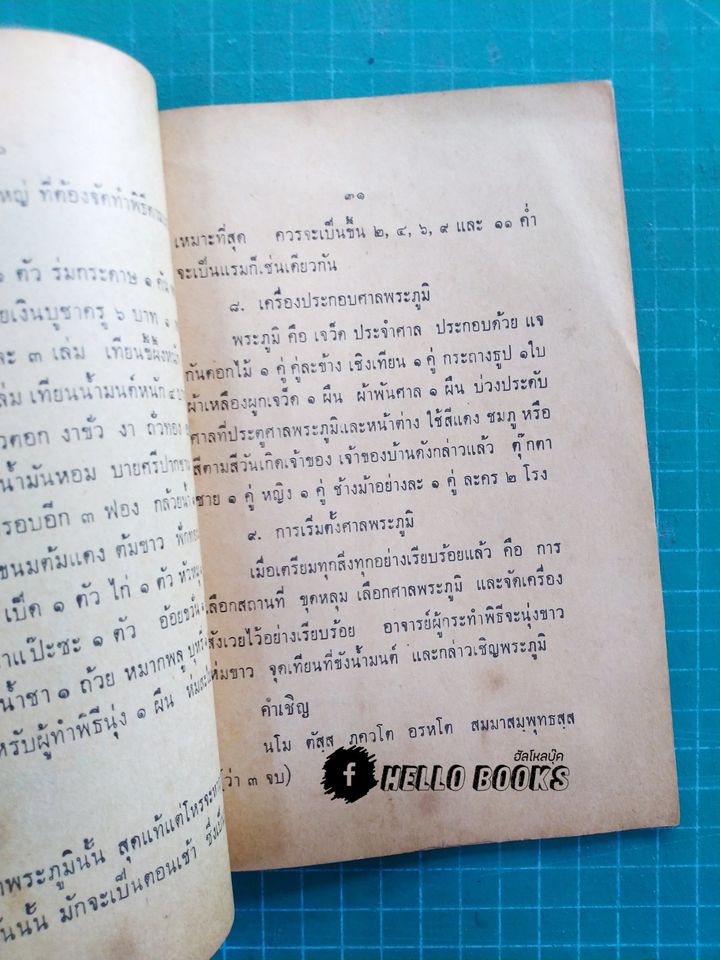 ๐
หญ่ ที่ต้องจัดทำพิธีตาม
๑ ตัว ร่มกระดาษ ๑ คัน
ยเงินบูชาครู ๖ บาท ๑
ละ ๓ เล่ม เทียนขี้ผึ้งหนัก
ล่ม เทียนน้ำมนต์หนัก ๔
วตอก งาขั้ว งา ถั่วทอง
น้ำมันหอม บายศรีปาก
รอบอีก ๓ ฟอง กล้วยน้ำ
ขนมต้มแดง ต้มขาว ฟักทอง
เป็ด ๑ ตัว ไก่ ๑ ตัว หัวหมู
าแป๊ะซะ ๑ ตัว อ้อยขวั้น
น้ำชา ๑ ถ้วย หมากพลู บุหรี่
หรับผู้ทำพิธีนุ่ง ๑ ผืน ห่ม
าพระภูมินั้น สุดแท้แต่โหรจะ
นนั้น มักจะเป็นตอนเช้า ซึ่ง
๓๑
เหมาะที่สุด ควรจะเป็นขึ้น ๒, ๔, ๖, ๙ และ ๑๑ ค่ำ
จะเป็นแรมก็เช่นเดียวกัน
๘. เครื่องประกอบศาลพระภูมิ
พระภูมิ คือ เจว็ด ประจำศาล ประกอบด้วย แจ
กันดอกไม้ ๑ คู่ คู่ละข้าง เชิงเทียน ๑ คู่ กระถางธูป ๑ใบ
ผ้าเหลืองผูกเจว็ด ๑ ผืน ผ้าพันศาล ๑ ผืน บ่วงประดับ
ศาลที่ประตูศาลพระภูมิและหน้าต่าง ใช้สีแดง ชมภู หรือ
สีตามสีวันเกิดเจ้าของ เจ้าของบ้านดังกล่าวแล้ว ตุ๊กตา
ชาย ๑ คู่ หญิง ๑ คู่ ช้างม้าอย่างละ ๑ คู่ ละคร ๒ โรง
๙. การเริ่มตั้งศาลพระภูมิ
เมื่อเตรียมทุกสิ่งทุกอย่างเรียบร้อยแล้ว คือ การ
เลือกสถานที่ ขุดหลุม เลือกศาลพระภูมิ และจัดเครื่อง
สังเวยไว้อย่างเรียบร้อย อาจารย์ผู้กระทำพิธีจะนุ่งขาว
ห่มขาว จุดเทียนที่ขังน้ำมนต์ และกล่าวเชิญพระภูมิ
คำเชิญ
นโม ตัสฺส ภควโต อรหโต สมมาสมฺพุทธสฺส
(ว่า ๓ จบ)
ฮัลโหลบุ๊ค
f HELLO BOOKS